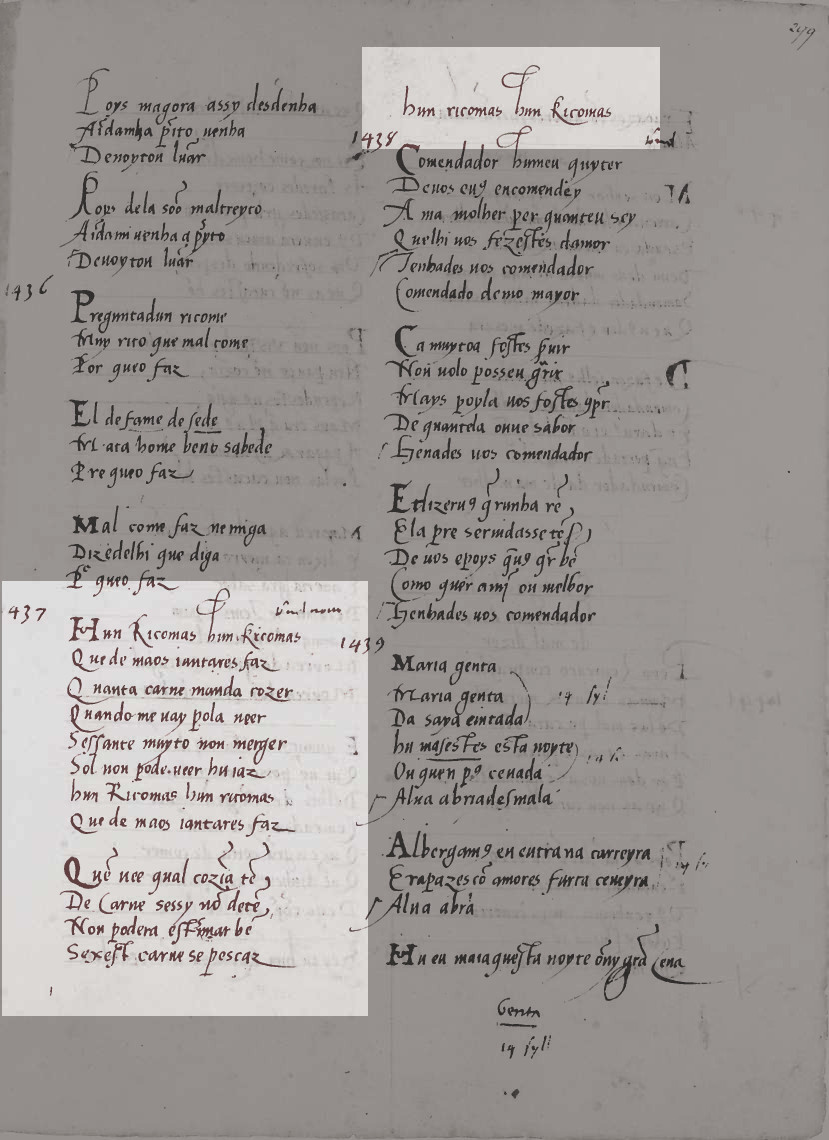 299
Poys magora assy desdenha
Aidamha p̃ito uenha
Denoyton luar
Poys dela soo maltreyto
Aidamiuenha a p̃yto
Deuoyton luar
1436
Preguntadun ricome
Muy rico que mal come
Por queo faz
El de fame de sede
Mata home beno sabede
Pre queo faz
Mal come faz nemiga
Dizedelhi que diga
Pᵉ queo faz
437
Hun Ricomas hun Ricomas
Que de maos iantares faz
Quanta carne manda cozer
Quando me uay pola ueer
Sessante muyto non merger
Sol non pode ueer hu iaz
hun Ricomas hun ricomas
Que de maos iantares faz
Quẽ uee qual cozĩa tẽ
De Carne sessy nõ detẽ
Non podera estimar bẽ
Sexest carne se pescaz
hun ricomas hun Ricomas
1438
Comendador humeu quyter
De uos eu9 encomendey
A ma molher per quanteu sey
Quelhi uos fezestes damor
Tenhades uos comendador
Comendado demo mayor
Ca muytoa fostes p̃uir
Non uolo posseu g̃rix
Mays poyla uos fostes 9pr̃
De quantela ouue sabor
Henades uos comendador
Et dizeru9 g̃runha rẽ
Ela pre seruidasse tẽ
De uos epoys q̃u9 qr̃ bẽ
Como quer amj̃ ou melhor
Henhades uos comendador
1439
Maria genta
Maria genta
Da saya cintada
14 syl
hu masestes esta noyte
Ou quen p9 ceuada
Alua abriadesmala
Albergam9 eu eutra na carreyra
Erapazes cõ amores furta ceueyra
Alua abra
Hu eu maiaquesta noyte ouuy grã Cena
Genta
14 syll